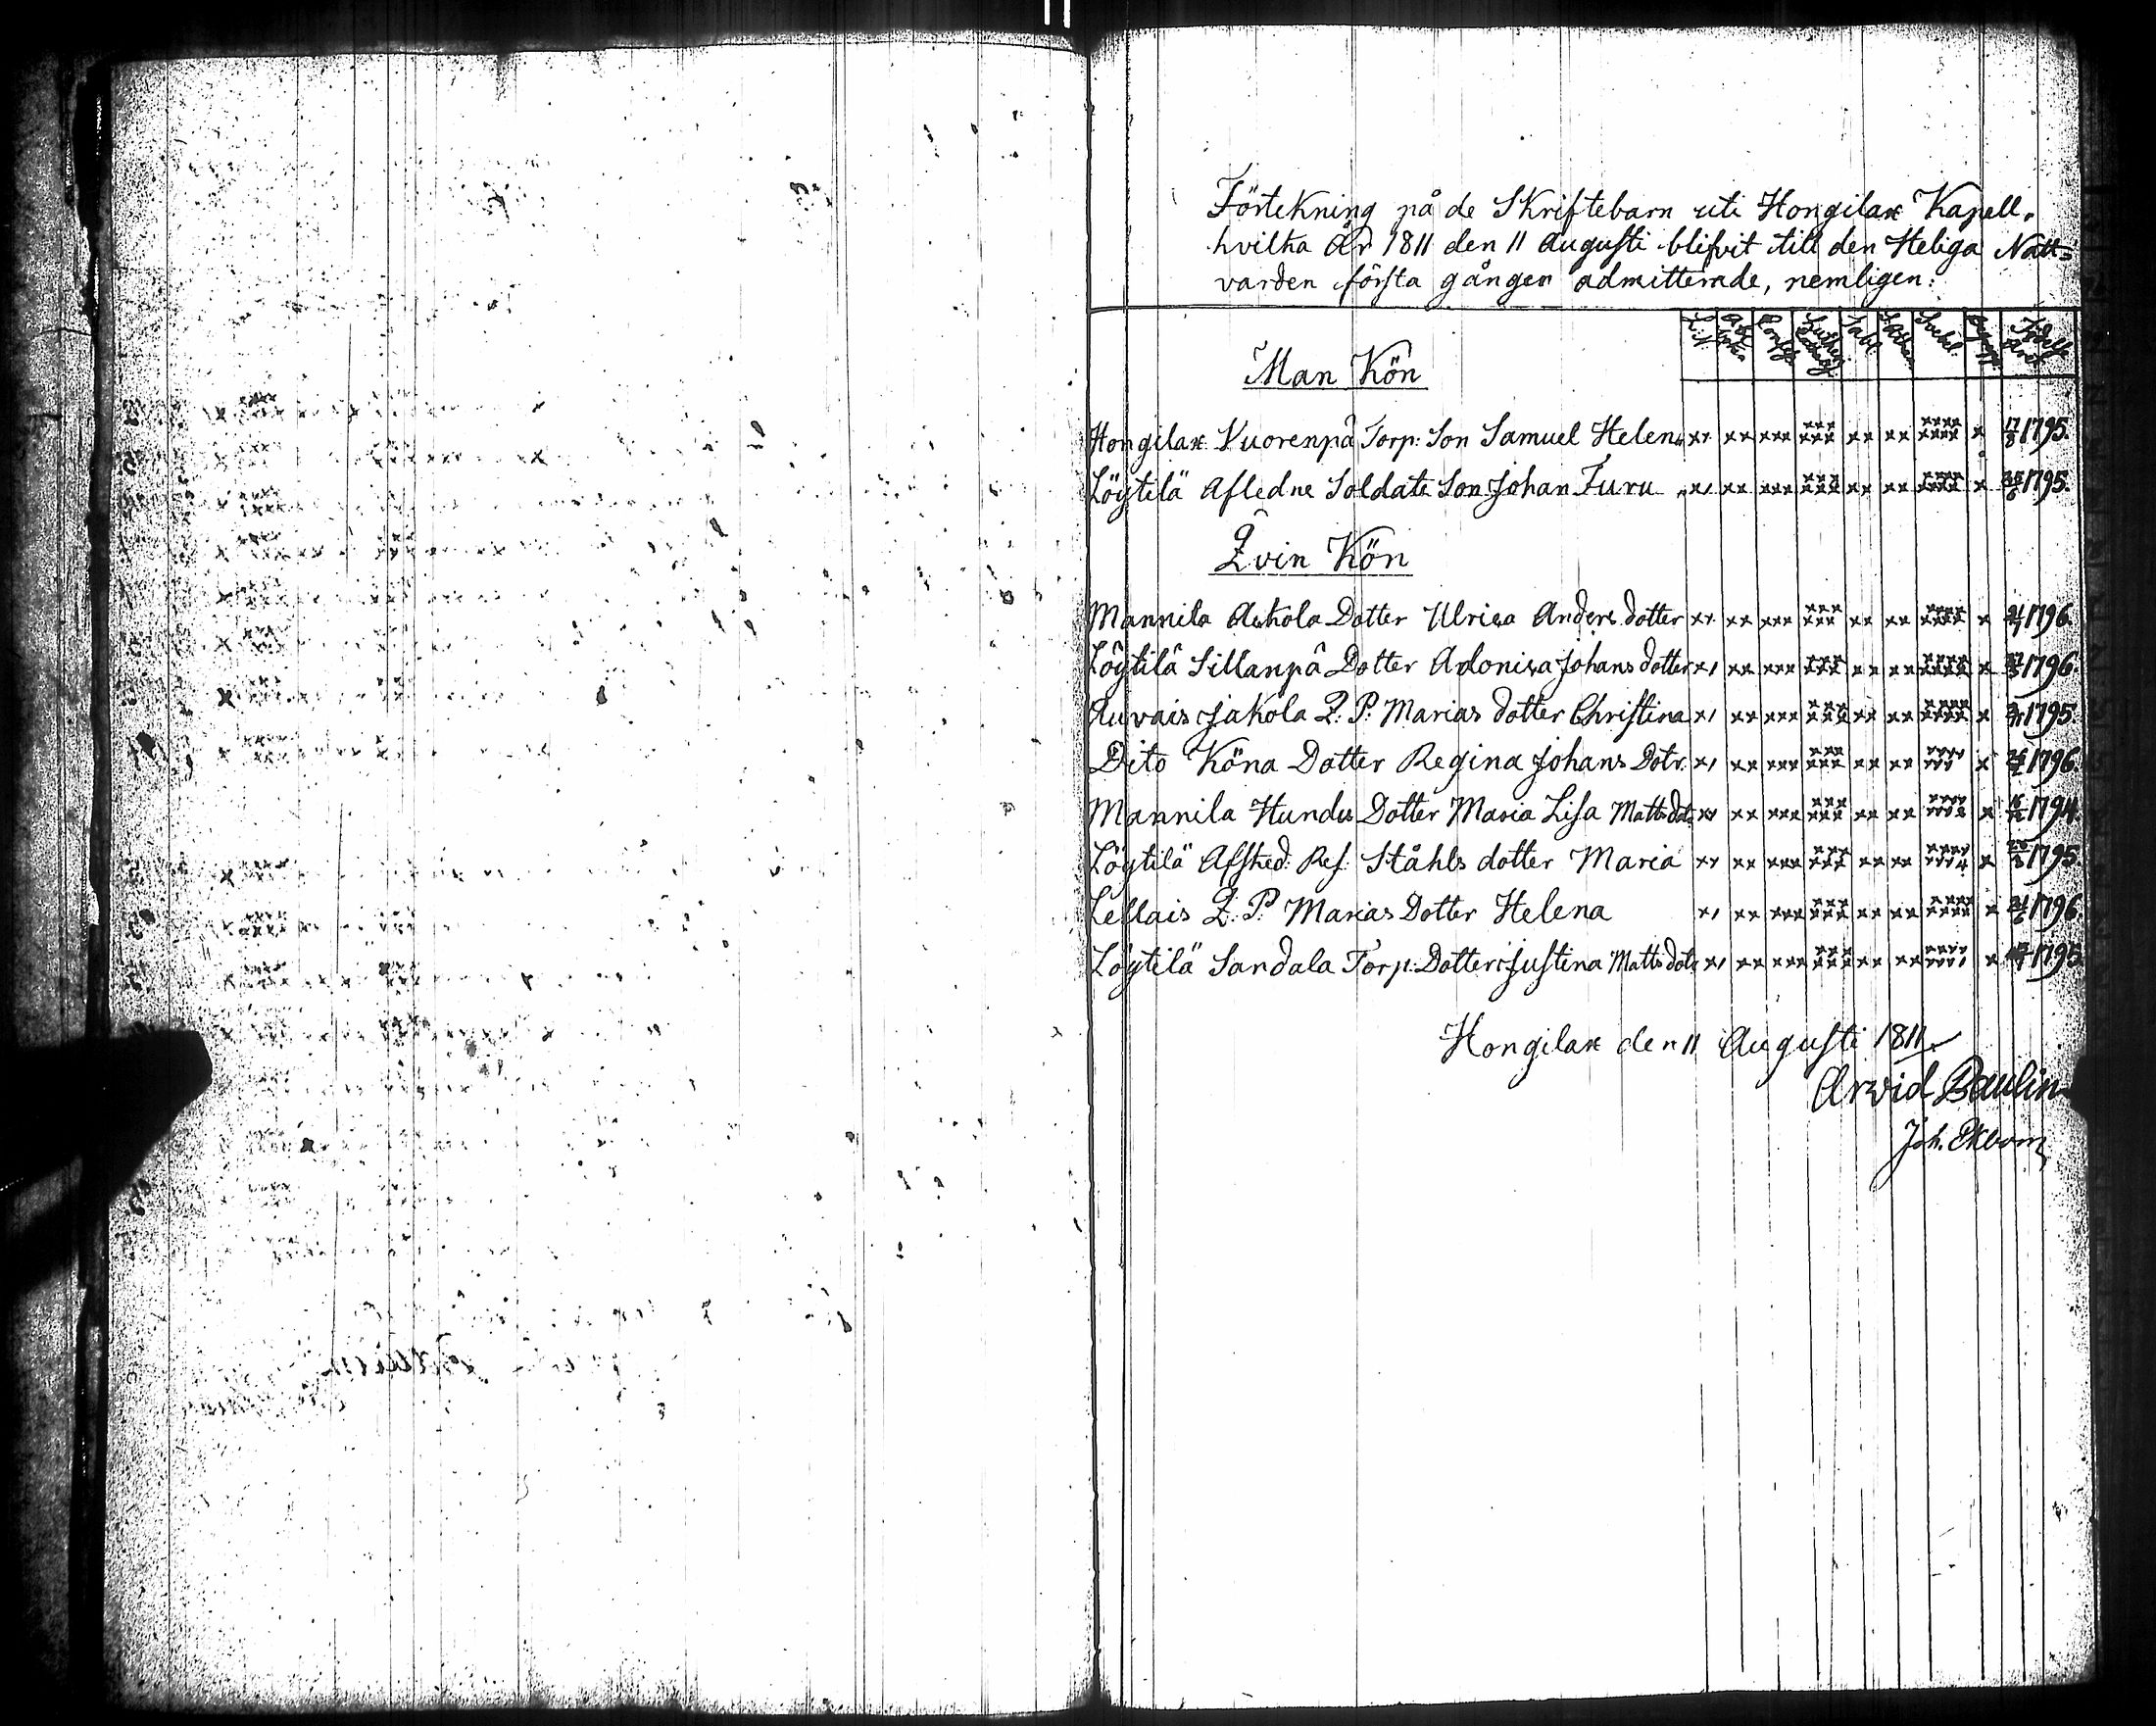 Förtekning på de Skriftebarn uti Hongilax Kapell,
hvilka År 1811 den 11 Augusti blifvit till den Heliga Natt=
varden första gången admitterade, nemligen:
Man Kön
Hongilax Vuorenpä Torp: Son Samuel Helen xx xx xxx xxx xxx xx xx xxxx xxxx x 1795.
Löytilä Afledne Soldats Son Johan Furu xx xx xxx xxx xxx xx xx xxxx xxxx x 1795.
Qvin Kön
Mannila Askola Dotter Ulrica Anders dotter xx xx xxx xxx xxx xx xx xxxx xxxx x 1796.
Löytilä Sillanpä Dotter Johans dotter xx xx xxx xxx xxx xx xx xxxx xxxx x 1796.
Auvais Jakola Q. P. Marias dotter Christina xx xx xxx xxx xxx xx xx xxxx xxxx x 1795.
Dito Köna Dotter Regina Johans Dotr. xx xx xxx xxx xxx xx xx x 1796.
Mannila Hundis Dotter Maria Lisa Matts dotr xx xx xxx xxx xxx xx xx x 1794.
Löytilä Afsked. Ståhls dotter Maria xx xx xxx xxx xxx xx xx x 1795.
Lellais Q. P. Marias Dotter Helena xx xx xxx xxx xxx xx xx xxxx xxxx x 1796.
Löytilä Sandala Torp: Dotter Justina Matts dotr xx xx xxx xxx xxx xx xx x 1795
Hongilax den 11 Augusti 1811.
Arvid Paulin
Joh. Ekbom